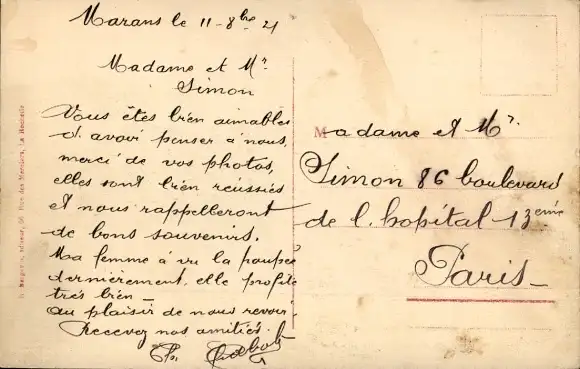 Marans le 11-8bre 21
Madame et Mr.
Simon
Vous êtes bien aimables
d. avoir penser à nous,
merci de vos photos,
elles sont bien réussies
et nous rappelleront
de bons souvenirs.
Ma femme à vu la poupée
dernièrement, elle profite
très bien —
au plaisir de nous revoir.
Recevez nos amitiés.
Madame et Mr.
Simon 86 boulevard
de l. hopital 13eme
Paris_